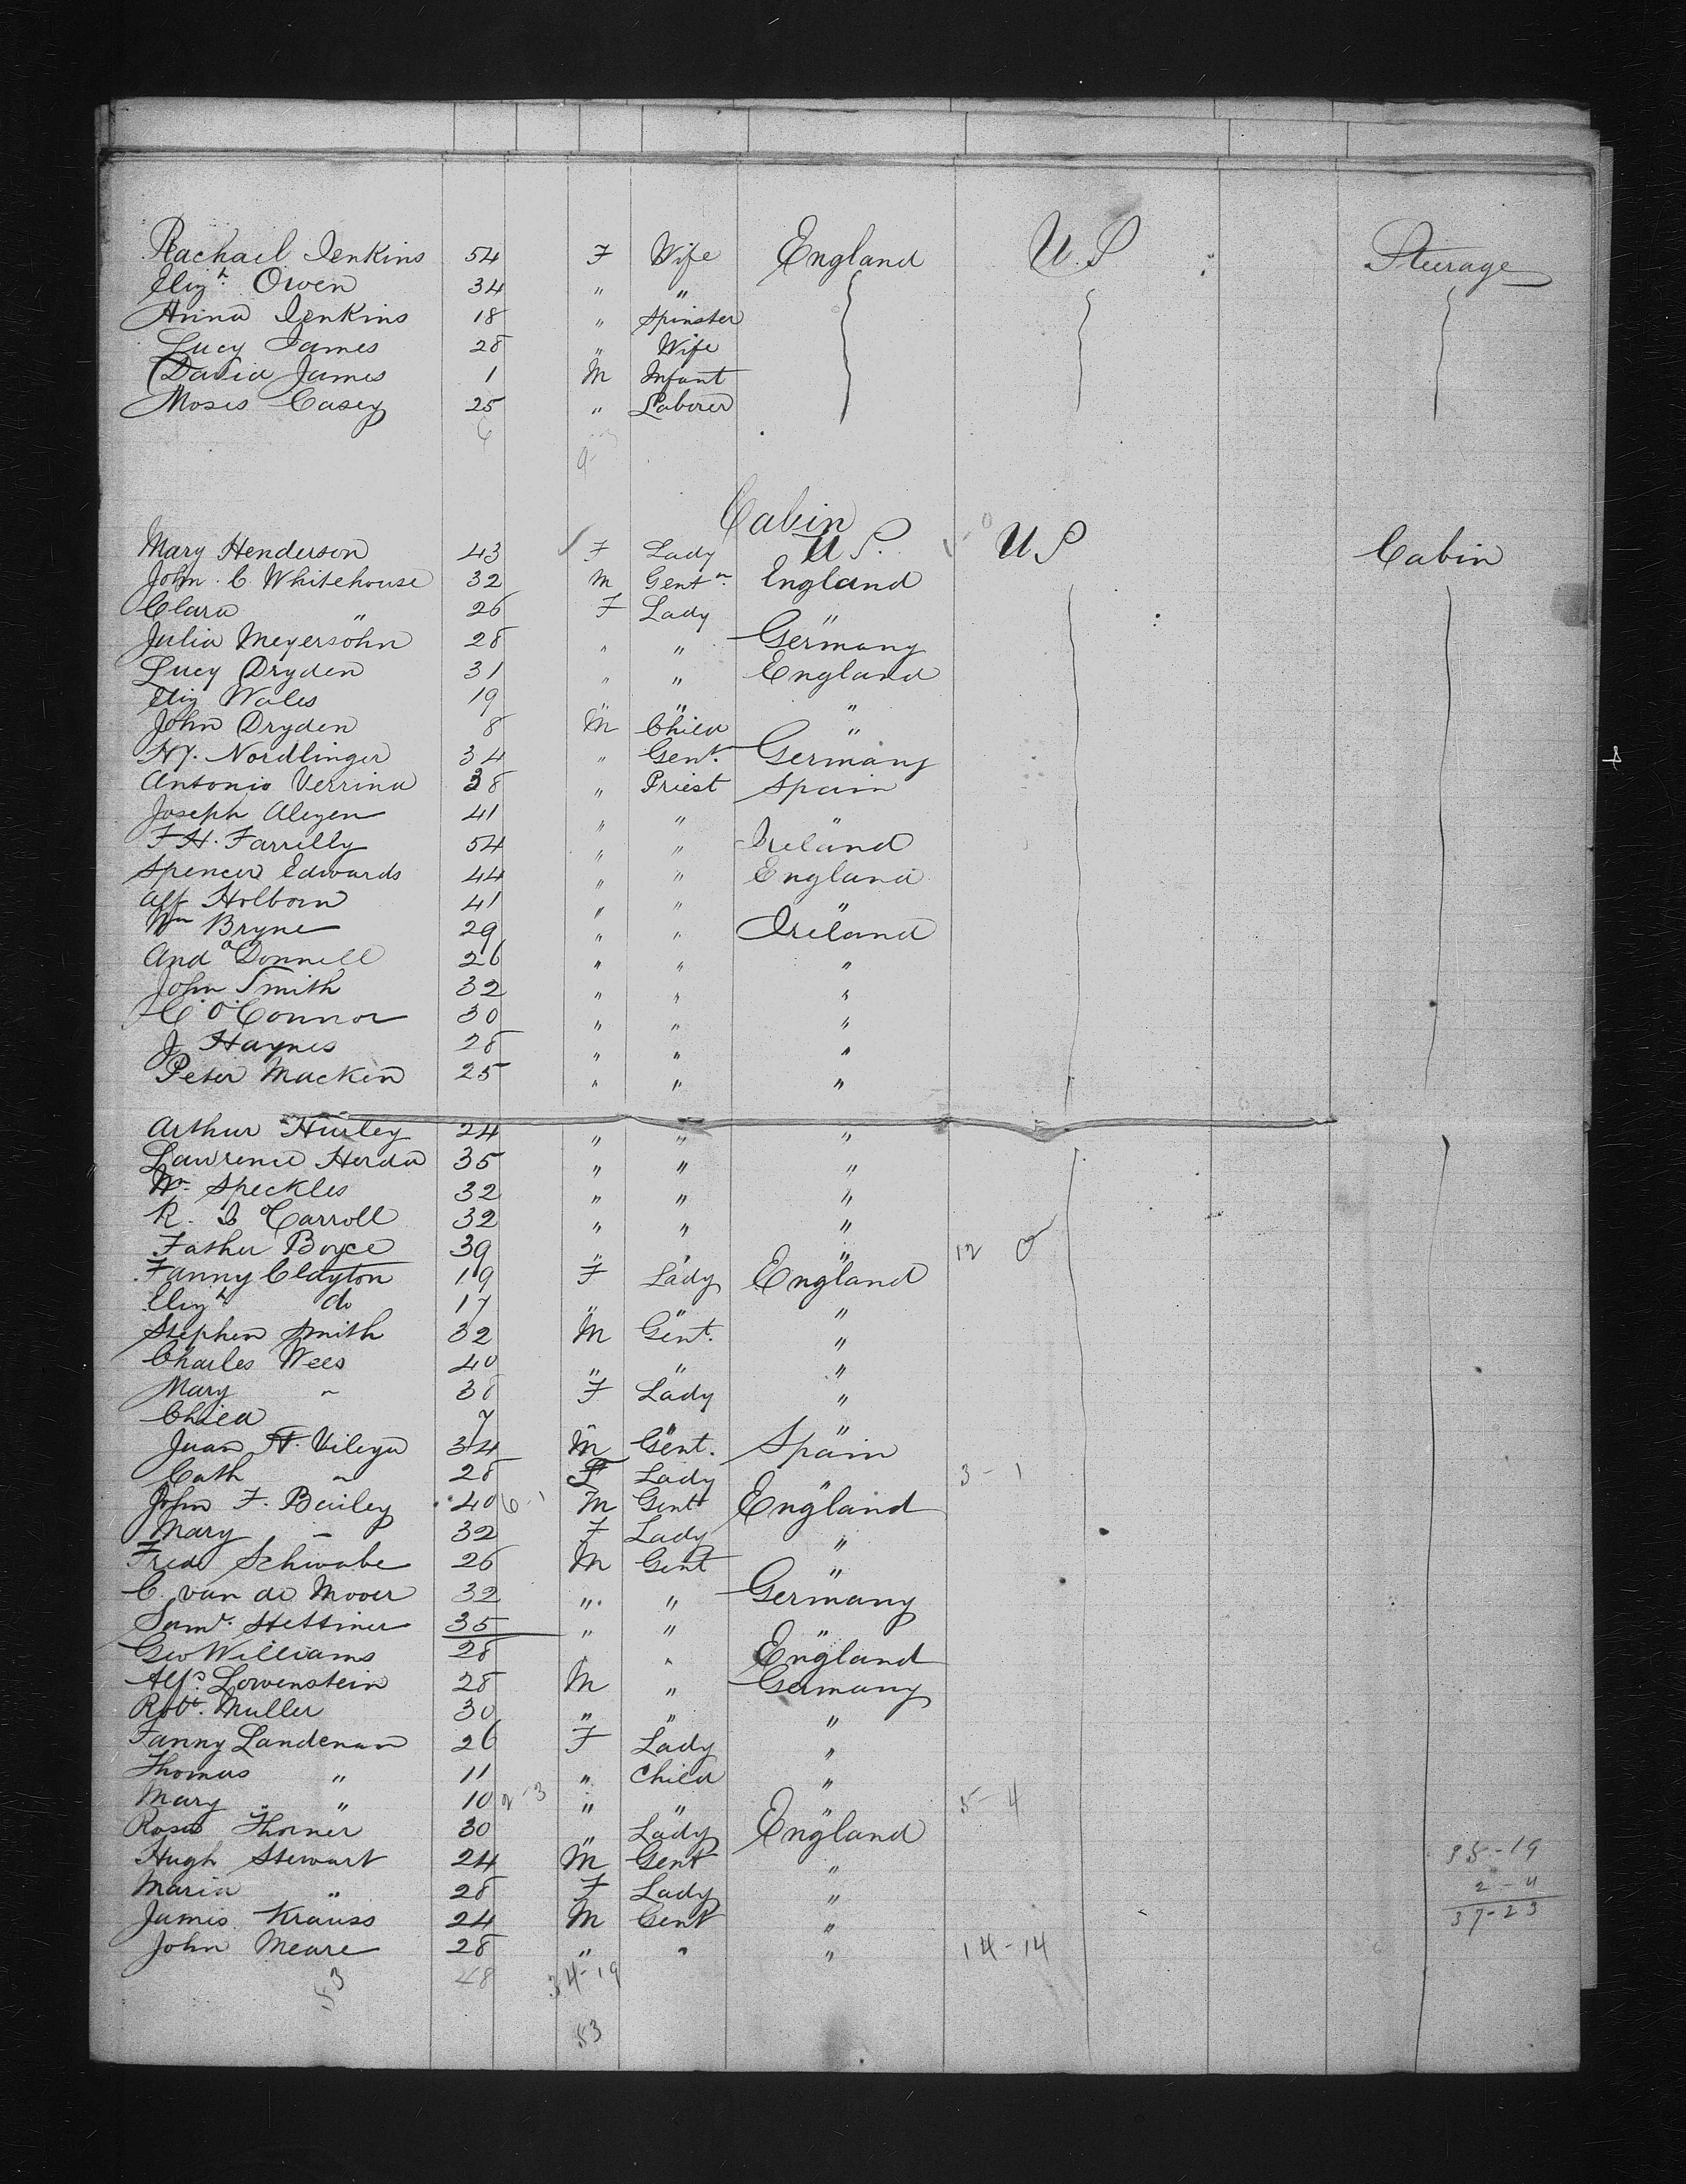 Rachael Jenkins 54 F Wife England U.S Steerage
Elizh Owen 34 " "
Anna Jenkins 18 " Spinster
Lucy James 28 " Wife
David James 1 M Infant
Moses Casey 25 " Laborer
6
Cabin
Mary Henderson 43 F Lady U S. U S Cabin
John C Whitehouse 32 M Gentn England
Clara " 26 F Lady "
Julia Meyersohn 28 " " Germany
Lucy Dryden 31 " " England
Eliz Wales 19 " " "
John Dryden 8 M Child "
Hy. Nordlinger 34 " Gent. Germany
Antonio Verrina 38 " Priest Spain
Joseph Alegen 41 " " "
F H. Farrelly 54 " " Ireland
Spencer Edwards 44 " " England
Alf Holborn 41 " " "
Wm Bryne 29 " " Ireland
And O'Donnell 26 " " "
John Smith 32 " " "
C O'Connor 30 " " "
J Haynes 28 " " "
Peter Macken 25 " " "
Arthur Hurley 24 " " "
Lawrence Herda 35 " " "
Wm Speckles 32 " " "
R. I O'Carroll 32 " " "
Father Boyce 39 " " " 12 0
Fanny Clayton 19 F Lady England
Elizh do 17 " " "
Stephen Smith 32 M Gent. "
Charles Wees 40 " " "
Mary " 38 F Lady "
Child 7
Juan F. Vileya 34 M Gent. Spain
Cath " 28 F Lady " 3 - 1
John F. Bailey 40 6-1 M Gent England
Mary " 32 F Lady "
Fredk Schwabe 26 M Gent "
C. van de Mooer 32 " " Germany
Saml. Stettiner 35 " " "
Geo Williams 28 " " England
Alfd. Lowenstein 28 M " Germany
Robt. Muller 30 " " "
Fanny Landenan 26 F Lady "
Thomas " 11 " Child "
Mary " 10 2-3 " " " 5-4
Rosa Thorner 30 " Lady England
Hugh Stewart 24 M Gent " 35-19
Maria " 28 F Lady " 2-4
James Krauss 24 M Gent " 37-23
John Meare 28 " " " 14-14
53 48 34-19
53